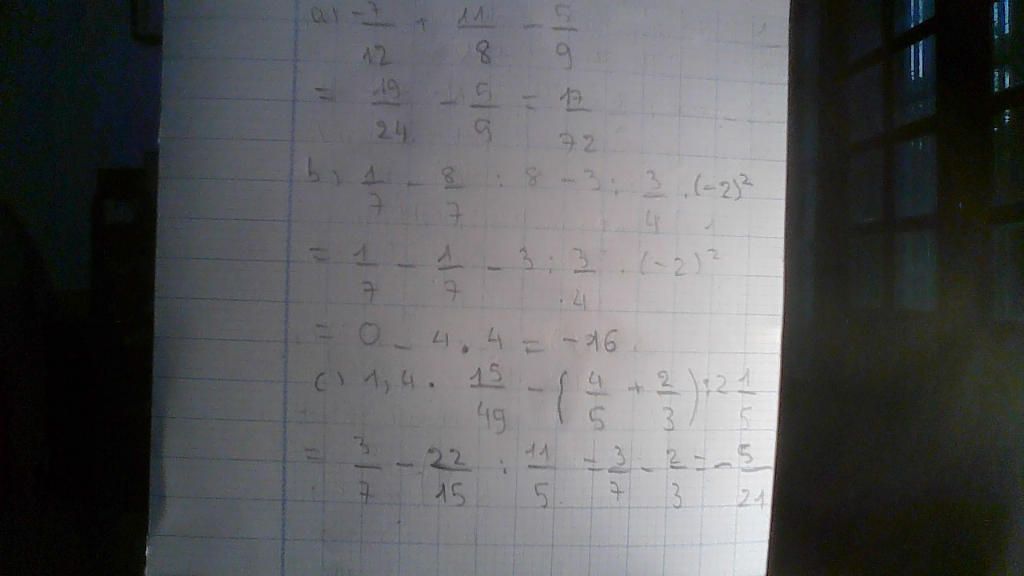 a) -7/12 + 11/8 - 5/9
= 19/24 - 5/9 = 17/72
b) 1/7 - 8/7 : 8 - 3 : 3/4 . (-2)²
= 1/7 - 1/7 - 3 : 3/4 . (-2)²
= 0 - 4 . 4 = -16
c) 1,4 . 15/49 - (4/5 + 2/3) : 2 1/5
= 3/7 - 22/15 : 11/5 = 3/7 - 2/3 = - 5/21